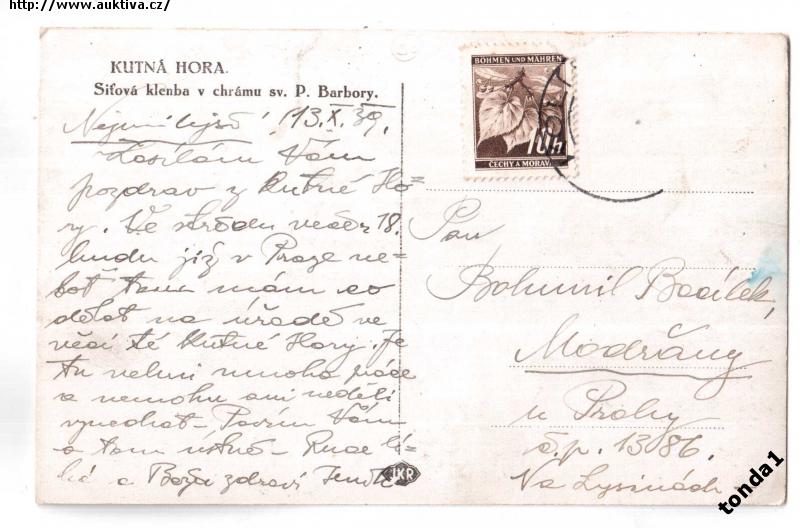 http://www.auktiva.cz/
KUTNÁ HORA.
Siťová klenba v chrámu sv. P. Barbory.
BÖHMEN UND MÄHREN
10h
ČECHY A MORAVA
Nejmilejší! 13.X.39.
Zasílám Vám
pozdrav z Kutné Ho=
ry. Ve středu večer 18.
budu již v Praze ne=
boť tam mám co
dělat na úřadě ve
věci té Kutné Hory. Je
tu velmi mnoho práce
a nemohu ani neděli
vynechat. Povím Vám
o tom ústně. Ruce lí=
bá a Bože zdraví
JKR
Pan
Bohumil
Modřany
u Prahy
č.p. 1386.
Na Lysinách
tonda1